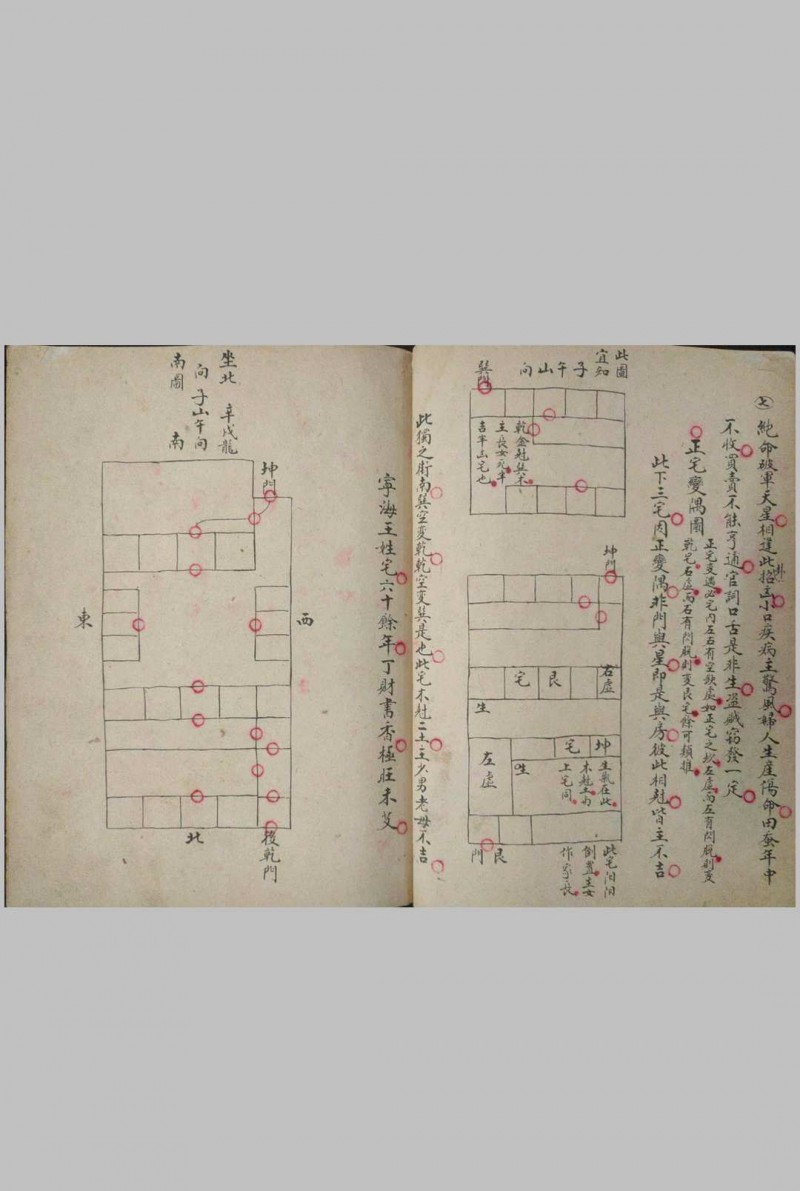 絶命破軍天星相逢此招主小口疾病主驚風婦人生産傷命田蚕年中
卦
不收買賣不能亨通官詞口舌是非生盗賊窃發一定
正宅變遇必宅内左右有空缺處如正宅之坎左虚而左有門脱則变
乾宅右虚而右有門脱則变艮宅餘可類推
正宅變偶圖
此下三宅肉正變偶非門與星即是與房彼此相尅皆主不吉
此圖
宜知
子午山向
巽門
乾金尅巽木
主長女死
吉半凶宅也
坤門
右虚
艮
宅
生
坤
宅
生
左虚
生氣在此
木尅土
上宅同
此宅
倒置主女
作家長
艮門
此獨之術南巽空变乾乾空变巽是也此宅木尅二土主少男老母不吉
寧海王姓宅六十餘年丁財書香極旺未艾
坐北
向
南圖
辛戌龍
子山午向
南
坤門
西
東
北
後乾門